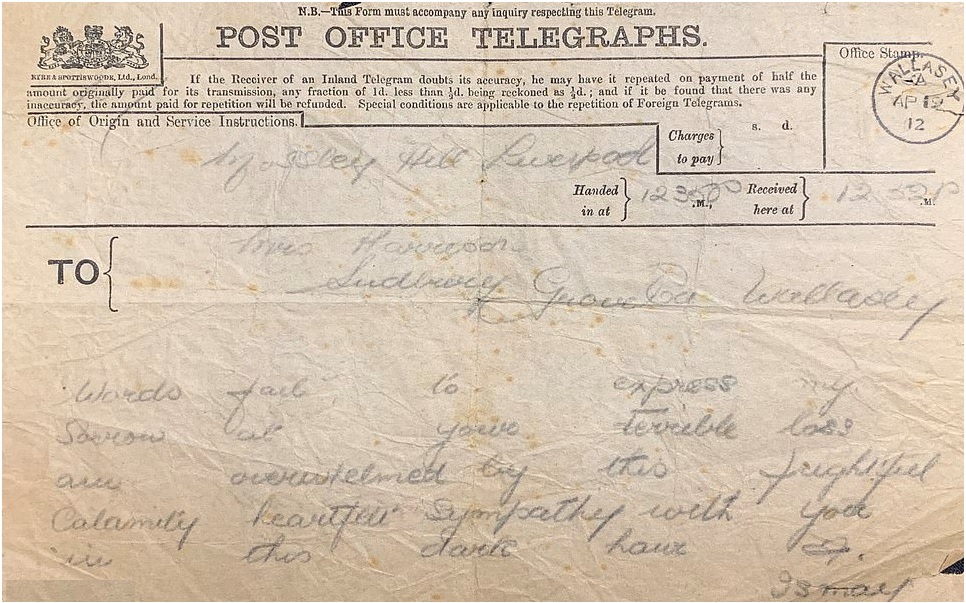 N.B.—This Form must accompany any inquiry respecting this Telegram.
POST OFFICE TELEGRAPHS.
EYRE & SPOTTISWOODE, Ltd., Lond.
If the Receiver of an Inland Telegram doubts its accuracy, he may have it repeated on payment of half the
amount originally paid for its transmission, any fraction of 1d. less than ½d. being reckoned as ½d.; and if it be found that there was any
inaccuracy, the amount paid for repetition will be refunded. Special conditions are applicable to the repetition of Foreign Telegrams.
Office Stamp.
WALLASEY
AP 19
12
Office of Origin and Service Instructions.
Charges
to pay
s. d.
Mossley Hill Liverpool
Handed
in at
12 35 P
.M.,
Received
here at
12 52 P
.M.
TO
Mrs Harrison
Sudbury
Grove Rd Wallasey
Words fail to express my
Sorrow at your terrible loss
am overwhelmed by this frightful
Calamity heartfelt Sympathy with you
in this dark hour
Ismay